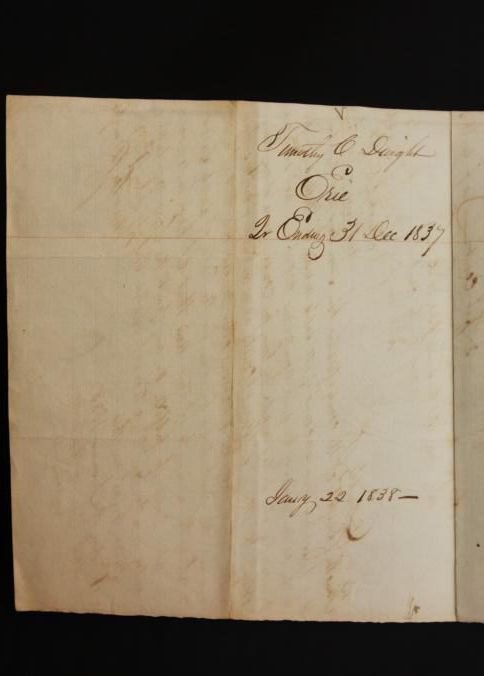 Timothy C Dwight
Erie
Qr Ending 31 Dec 1837
Jany 22 1838—